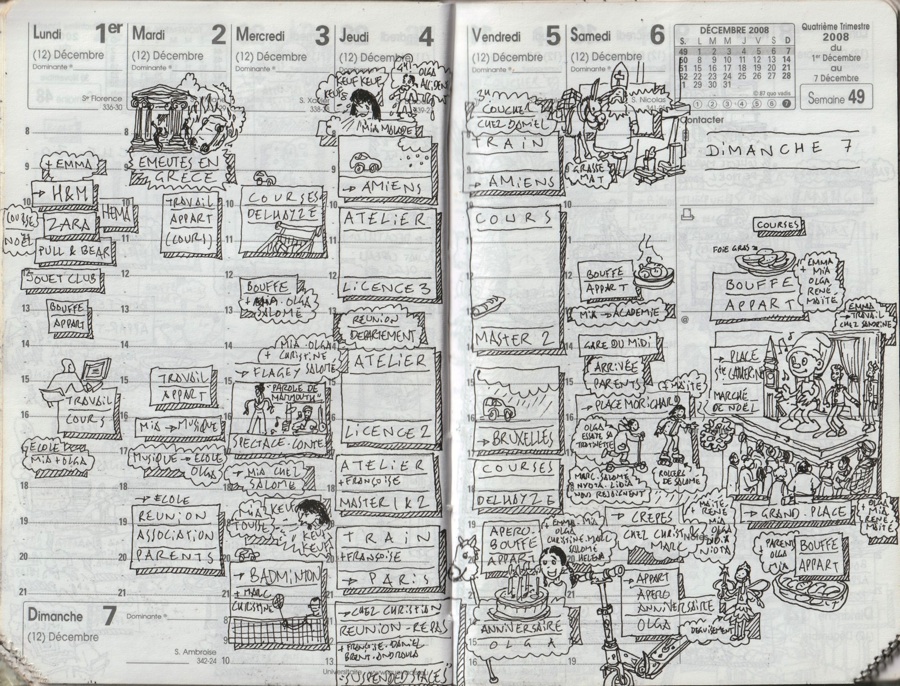 Lundi 1er
(12) Décembre
Dominante
Ste Florence
336-30
8
9
+ EMMA
→ H&M
COURSES
NOËL
ZARA
HEMA
PULL & BEAR
JOUET CLUB
BOUFFE
APPART
TRAVAIL
COURS
ECOLE DE
MIA + OLGA
Dimanche 7
Dominante
(12) Décembre
S. Ambroise
342-24
Mardi 2
(12) Décembre
Dominante
EMEUTES EN
GRÈCE
TRAVAIL
APPART
(COURS)
TRAVAIL
APPART
MIA → MUSIQUE
MUSIQUE → ECOLE
OLGA
→ ECOLE
REUNION
ASSOCIATION
PARENTS
Mercredi 3
(12) Décembre
Dominante
COURSES
DELHAYZE
BOUFFE
+ MIA OLGA
SALOME
MIA OLGA
+ CHRISTINE
→ FLAGEY SALOME
"PAROLE DE
MARMOUTH"
SPECTACLE-CONTE
→ MIA CHEZ
SALOME
MIA
TOUSSE
KEUF
KEUF
KEUF
→ BADMINTON
+ MARC
CHRISTINE
Jeudi 4
(12) Décembre
KEUF KEUF
KEUF
MIA MALADE
OLGA
ACCIDENT
→ AMIENS
ATELIER
LICENCE 3
REUNION
DEPARTEMENT
ATELIER
LICENCE 2
ATELIER
+ FRANÇOISE
MASTER 1 & 2
TRAIN
+ FRANÇOISE
→ PARIS
→ CHEZ CHRISTIAN
REUNION-REPAS
+ FRANÇOISE. DANIEL
BRENT. ANDROULA
"SUSPENDED SPACES"
Vendredi 5
(12) Décembre
Dominante
COUCHER
CHEZ DANIEL
TRAIN
→ AMIENS
COURS
MASTER 2
→ BRUXELLES
COURSES
DELHAYZE
APERO.
BOUFFE
APPART
+ EMMA. MIA
CHRISTINE. MARC
SALOME
HELENA
ANNIVERSAIRE
OLGA
Samedi 6
(12) Décembre
Dominante
S. Nicolas
GRASSE
MAT
BOUFFE
APPART
MIA → ACADEMIE
GARE DU MIDI
ARRIVÉE
PARENTS
(+ MAITE)
→ PLACE MORICHAR
OLGA
ESSAYE SA
TROTINETTE
ROLLERS
DE SALOME
MARC. SALOME
NIYOTA. LIDIA
NOUS REJOIGNENT
→ CREPES
CHEZ CHRISTINE
MARC
+ MAITE
RENE
MIA
OLGA
LIDIA
NIOTA
→ APPART
APERO
ANNIVERSAIRE
OLGA
DEGUISEMENT
DÉCEMBRE 2008
S. L M M J V S D
49 1 2 3 4 5 6 7
50 8 9 10 11 12 13 14
51 15 16 17 18 19 20 21
52 22 23 24 25 26 27 28
1 29 30 31
© 87 quo vadis
1 2 3 4 5 6 7
Quatrième Trimestre
2008
du
1er Décembre
au
7 Décembre
Semaine 49
contacter
DIMANCHE 7
COURSES
FOIE GRAS
BOUFFE
APPART
+ EMMA
MIA
OLGA
RENE
MAITE
EMMA
→ TRAVAIL
CHEZ SANDRINE
→ PLACE
Ste CATHERINE
MARCHÉ
DE NOËL
→ GRAND. PLACE
OLGA
MIA
RENE
MAITE
PARENTS
OLGA
+ MIA
BOUFFE
APPART